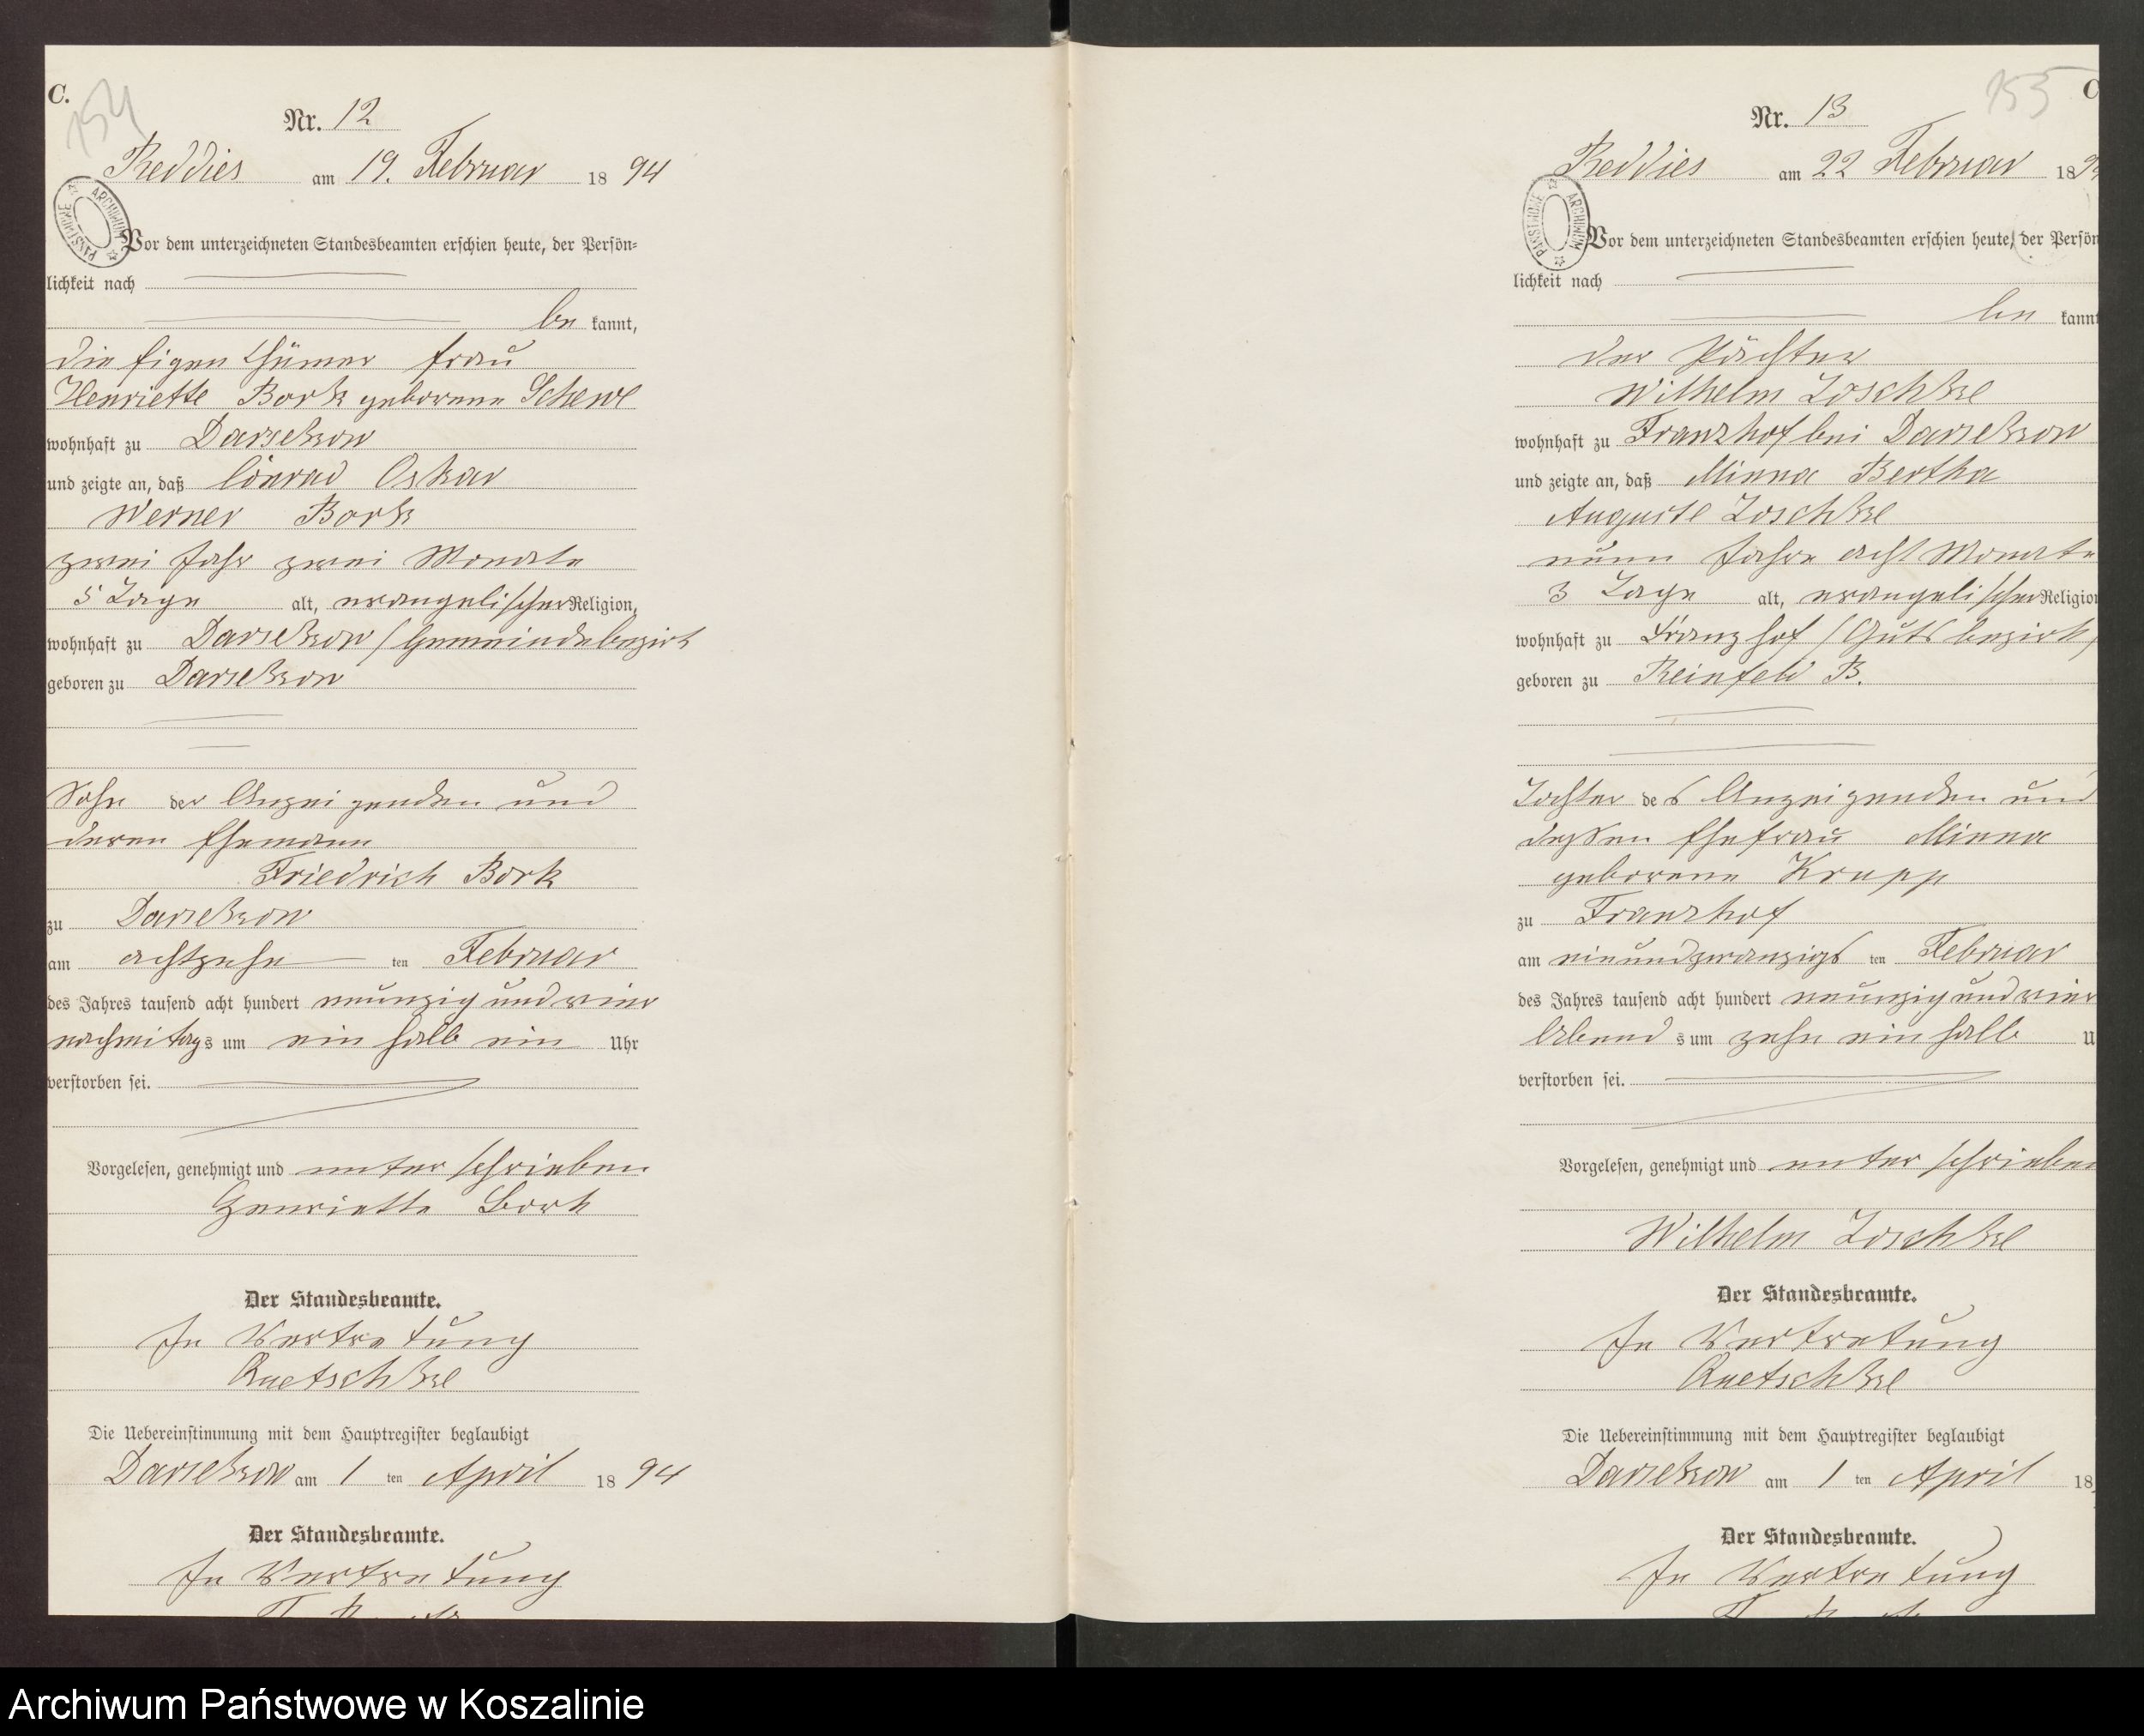 C.
154
Nr. 12
Reddies am 19. Februar 18 94
ARCHIWUM PAŃSTWOWE
Vor dem unterzeichneten Standesbeamten erschien heute, der Persön=
lichkeit nach
be kannt,
die Eigenthümer Frau
Henriette Bork geborene Schewe
wohnhaft zu Darsekow
und zeigte an, daß Conrad Oskar
Werner Bork
zwei Jahr zwei Monate
5 Tage alt, evangelischer Religion,
wohnhaft zu Darsekow /Gemeindebezirk
geboren zu Darsekow
Sohn der Anzeigenden und
deren Ehemann
Friedrich Bork
zu Darsekow
am achtzehn ten Februar
des Jahres tausend acht hundert neunzig und vier
nachmittags um ein halb ein Uhr
verstorben sei.
Vorgelesen, genehmigt und unterschrieben
Henriette Bork
Der Standesbeamte.
In Vertretung
Quetschke
Die Uebereinstimmung mit dem Hauptregister beglaubigt
Darsekow am 1 ten April 18 94
Der Standesbeamte.
In Vertretung
155
C
Nr. 13
Reddies am 22 Februar 189
ARCHIWUM PAŃSTWOWE
Vor dem unterzeichneten Standesbeamten erschien heute, der Persön
lichkeit nach
be kannt
der Pächter
Wilhelm Zoschke
wohnhaft zu Franzhof bei Darsekow
und zeigte an, daß Minna Bertha
Auguste Zoschke
neun Jahre acht Monate
3 Tage alt, evangelischer Religion
wohnhaft zu Franzhof /Gutsbezirk/
geboren zu Reinfeld B.
Tochter des Anzeigenden und
dessen Ehefrau Minna
geborene Krupp
zu Franzhof
am einundzwanzigs ten Februar
des Jahres tausend acht hundert neunzig und vier
Abend s um zehn ein halb U
verstorben sei.
Vorgelesen, genehmigt und unterschrieben
Wilhelm Zoschke
Der Standesbeamte.
In Vertretung
Quetschke
Die Uebereinstimmung mit dem Hauptregister beglaubigt
Darsekow am 1 ten April 18
Der Standesbeamte.
In Vertretung
Archiwum Państwowe w Koszalinie